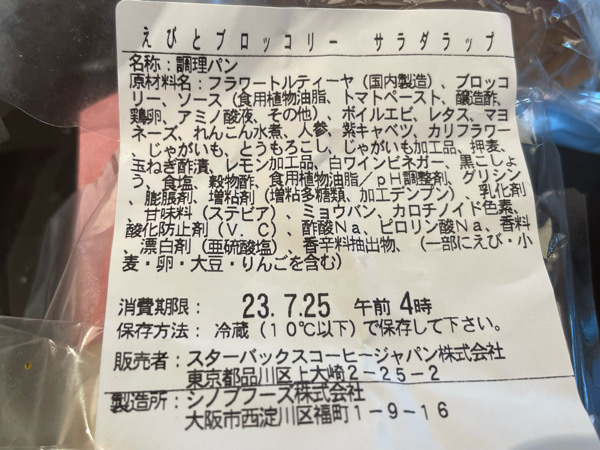 えびとブロッコリー サラダラップ
名称:調理パン
原材料名:フラワートルティーヤ(国内製造)、ブロッコ
リー、ソース(食用植物油脂、トマトペースト、醸造酢、
鶏卵、アミノ酸液、その他)、ボイルエビ、レタス、マヨ
ネーズ、れんこん水煮、人参、紫キャベツ、カリフラワー
、じゃがいも、とうもろこし、じゃがいも加工品、押麦、
玉ねぎ酢漬、レモン加工品、白ワインビネガー、黒こしょ
う、食塩、穀物酢、食用植物油脂/pH調整剤、グリシン
、膨脹剤、増粘剤(増粘多糖類、加工デンプン)、乳化剤
、甘味料(ステビア)、ミョウバン、カロチノイド色素、
酸化防止剤(V.C)、酢酸Na、ピロリン酸Na、香料
、漂白剤(亜硫酸塩)、香辛料抽出物、(一部にえび・小
麦・卵・大豆・りんごを含む)
消費期限: 23.7.25 午前 4時
保存方法: 冷蔵(10℃以下)で保存して下さい。
販売者:スターバックスコーヒージャパン株式会社
東京都品川区上大崎2-25-2
製造所:シノブフーズ株式会社
大阪市西淀川区福町1-9-16